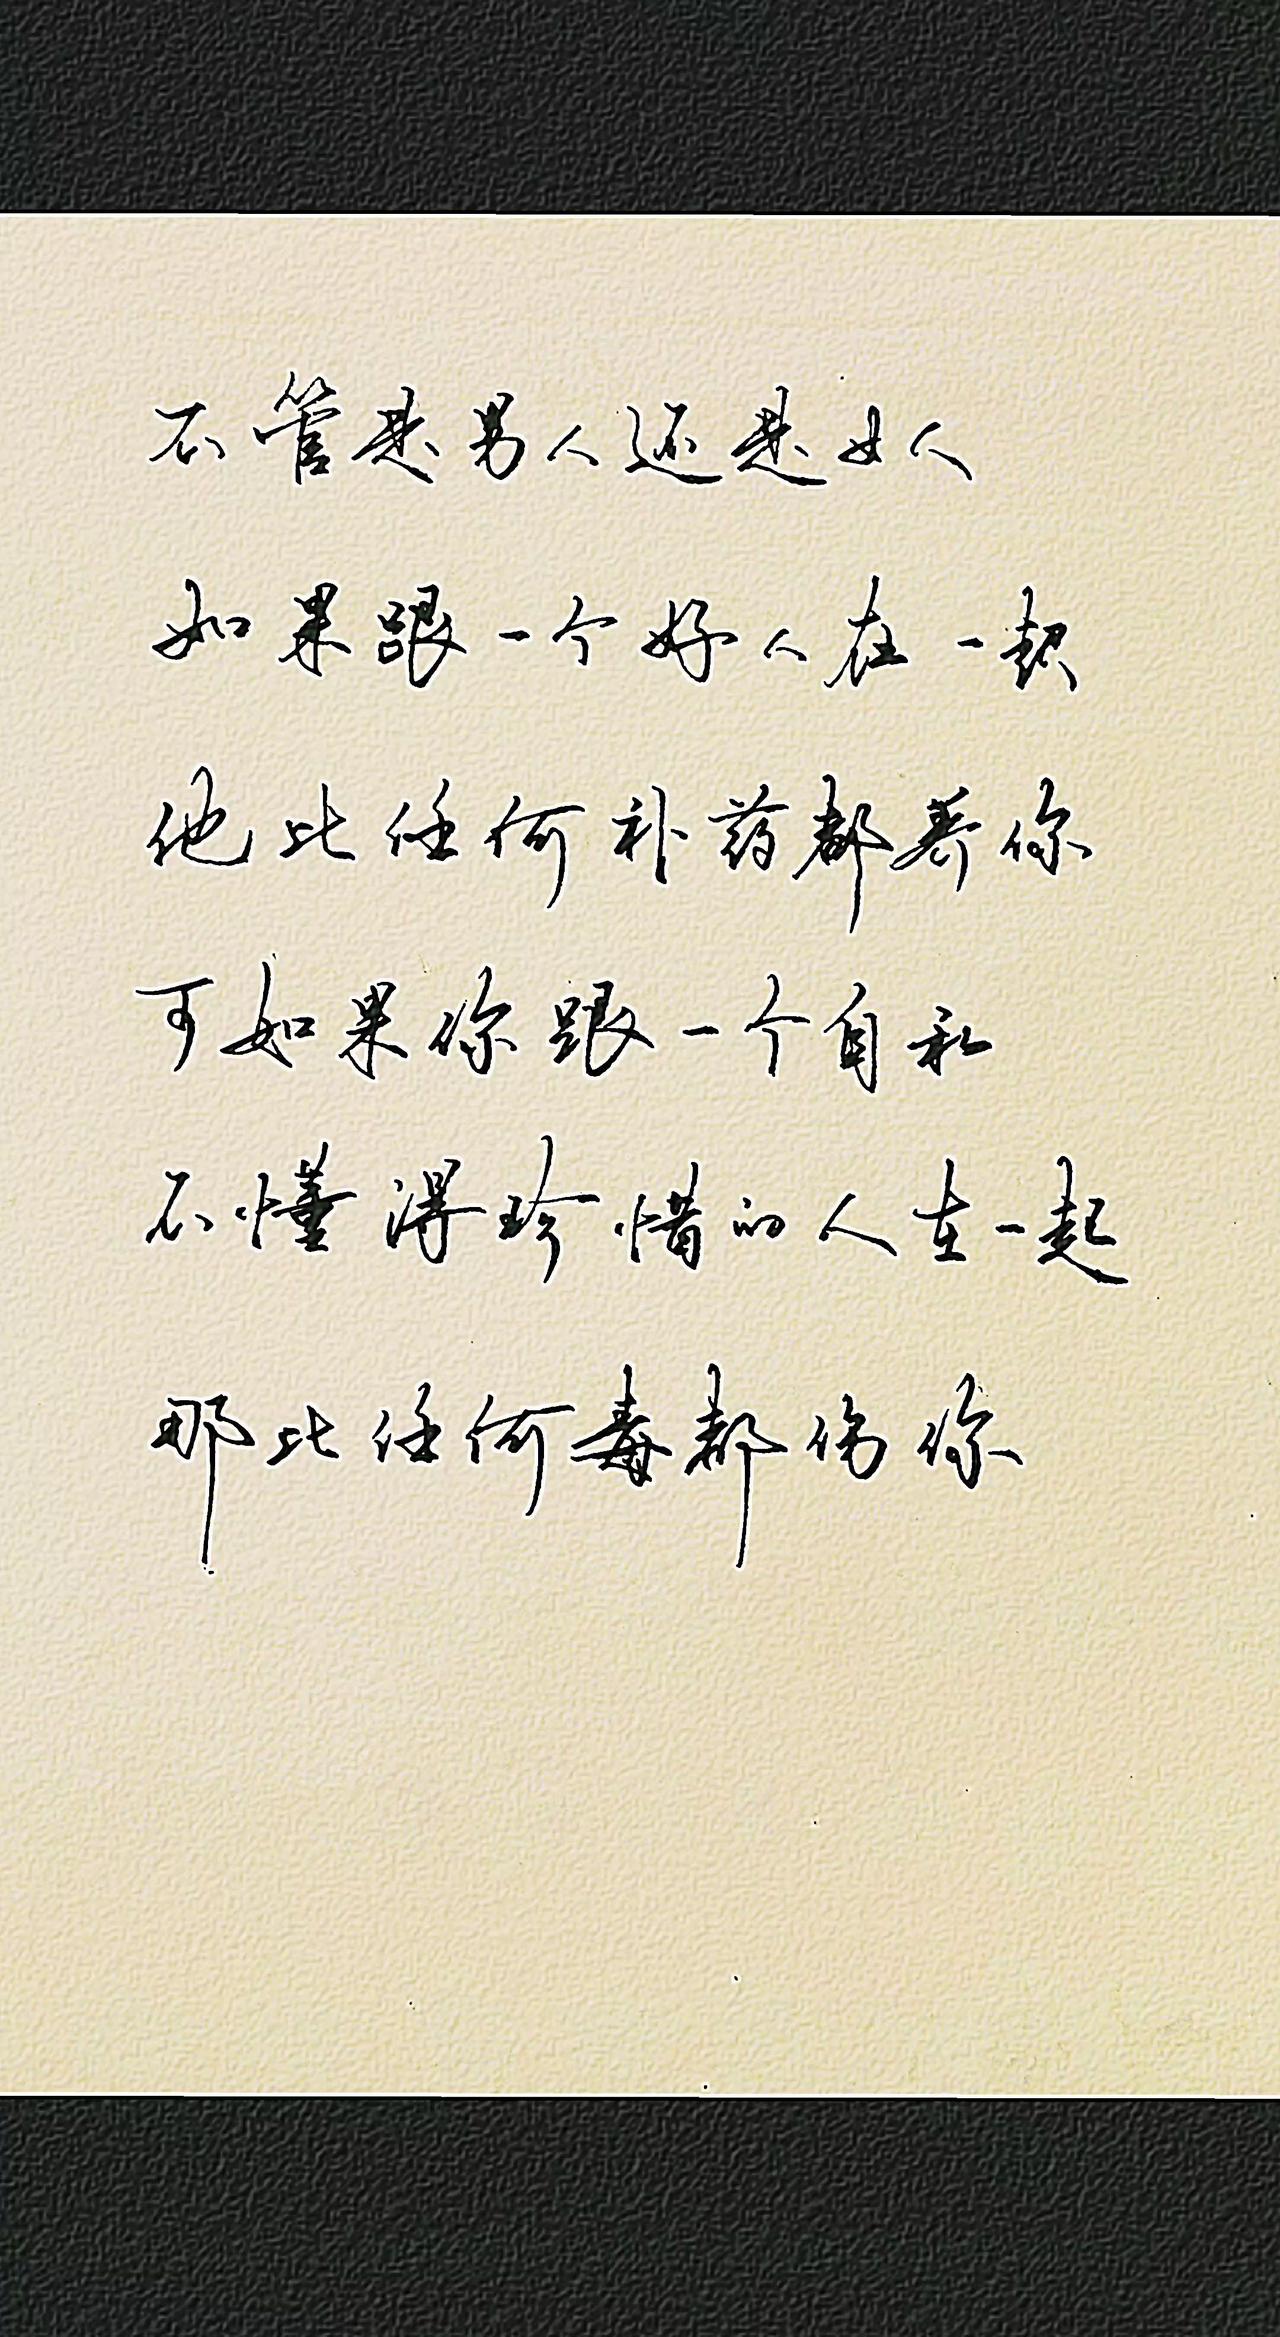 不管是男人还是女人
如果跟一个好人在一起
他比任何补药都养你
可如果你跟一个自私
不懂得珍惜的人在一起
那比任何毒都伤你